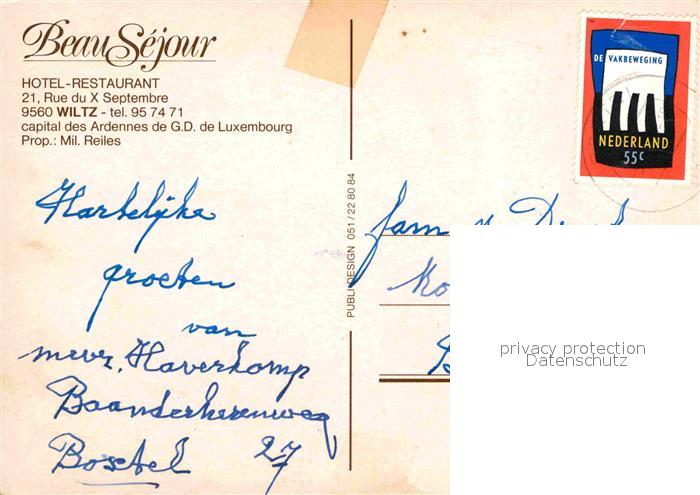 Beau Séjour
HOTEL-RESTAURANT
21, Rue du X Septembre
9560 WILTZ - tel. 95 74 71
capital des Ardennes de G.D. de Luxembourg
Prop.: Mil. Reiles
Hartelijke
groeten
van
mevr. Haverkomp
Baanderherenweg
Boxtel 27/7
PUBLI-DESIGN 051/22 80 84
DE VAKBEWEGING
NEDERLAND
55c
fam v.
privacy protection
Datenschutz